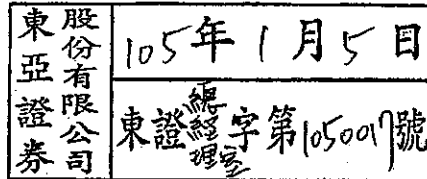 東亞證券
股份有限公司
105年1月5日
東證總經理室字第1050017號